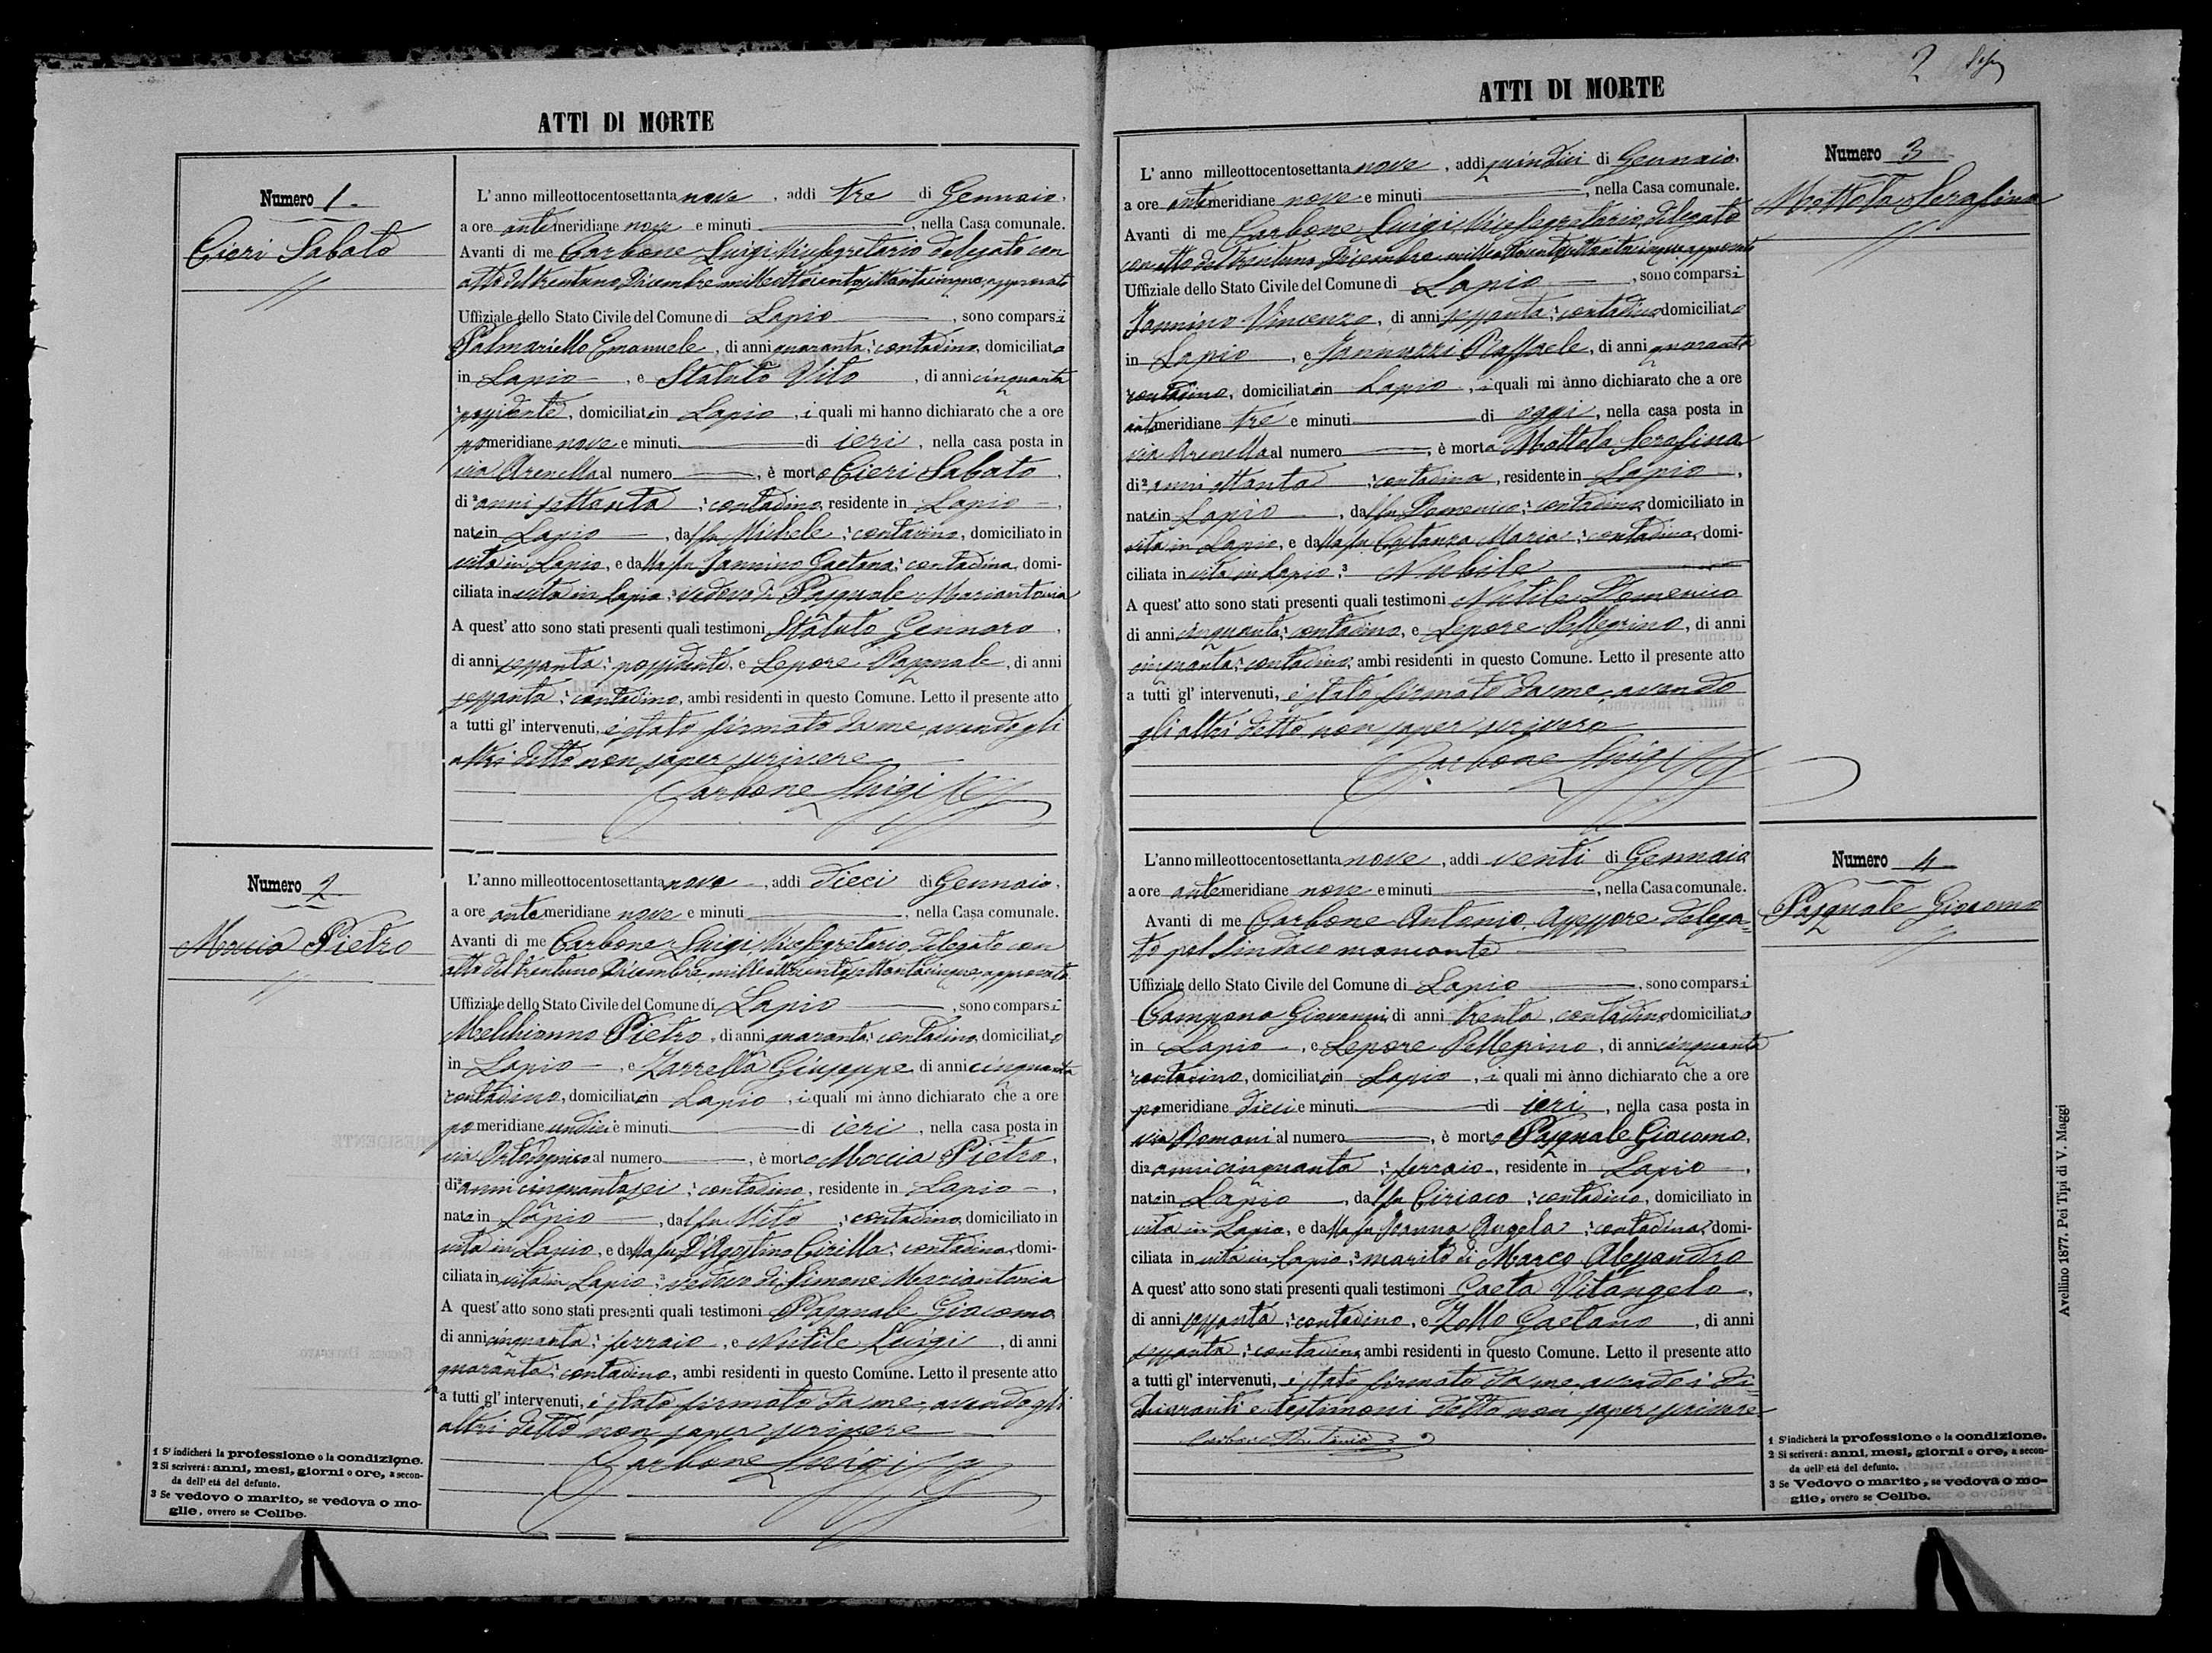 ATTI DI MORTE
Numero 1
Cieri Sabato
L' anno milleottocentosettanta nove, addi tre di Gennaio,
a ore antemeridiane nove e minuti, nella Casa comunale.
Avanti di me Carbone Luigi Vicesegretario delegato con
atto del trentuno Dicembre milleottocentosettantacinque, approvato
Uffiziale dello Stato Civile del Comune di Lapio, sono comparsi
Palmariello Emanuele, di anni quaranta, contadino, domiciliato
in Lapio, e Statuto Vito, di anni cinquanta
possidente, domiciliato in Lapio, i quali mi hanno dichiarato che a ore
pomeridiane nove e minuti di ieri, nella casa posta in
via Arenella al numero, è morto Cieri Sabato,
di 2 anni settanta, 1 contadino, residente in Lapio,
nato in Lapio, dal fu Michele, 1 contadino, domiciliato in
vita in Lapio, e dalla fu Jannino Gaetana, 1 contadina, domi-
ciliata in vita in Lapio, 3 vedovo di Pasquale Mariantonia
A quest' atto sono stati presenti quali testimoni Statuto Gennaro,
di anni sessanta, 1 possidente, e Lepore Pasquale, di anni
sessanta, 1 contadino, ambi residenti in questo Comune. Letto il presente atto
a tutti gl' intervenuti, è stato firmato da me, avendo gli
altri detto non saper scrivere
Carbone Luigi
Numero 2
Moccia Pietro
L' anno milleottocentosettanta nove, addi dieci di Gennaio,
a ore antemeridiane nove e minuti, nella Casa comunale.
Avanti di me Carbone Luigi, Vicesegretario, delegato con
atto del trentuno Dicembre milleottocentosettantacinque, approvato
Uffiziale dello Stato Civile del Comune di Lapio, sono comparsi
Melchionno Pietro, di anni quaranta, contadino, domiciliato
in Lapio, e Zarrella Giuseppe, di anni cinquanta
contadino, domiciliato in Lapio, i quali mi ànno dichiarato che a ore
pomeridiane undici e minuti di ieri, nella casa posta in
via al numero, è morto Moccia Pietro,
di 2 anni cinquantasei, 1 contadino, residente in Lapio,
nato in Lapio, dal fu Vito, 1 contadino, domiciliato in
vita in Lapio, e dalla fu D'Agostino Cirilla, 1 contadina, domi-
ciliata in vita in Lapio, 3 vedovo di Simone Mariantonia
A quest' atto sono stati presenti quali testimoni Pasquale Giacomo,
di anni cinquanta, 1 ferraio, e Nutile Luigi, di anni
quaranta, 1 contadino, ambi residenti in questo Comune. Letto il presente atto
a tutti gl' intervenuti, è stato firmato da me, avendo gli
altri detto non saper scrivere
Carbone Luigi
1 S' indicherà la professione o la condizione.
2 Si scriverà: anni, mesi, giorni o ore, a secon-
da dell' età del defunto.
3 Se vedovo o marito, se vedova o mo-
glie, ovvero se Celibe.
2
ATTI DI MORTE
Numero 3
Mottola Serafina
L' anno milleottocentosettanta nove, addi quindici di Gennaio,
a ore antemeridiane nove e minuti, nella Casa comunale.
Avanti di me Carbone Luigi, Vicesegretario, delegato
con atto del trentuno Dicembre milleottocentosettantacinque, approvato
Uffiziale dello Stato Civile del Comune di Lapio, sono comparsi
Jannino Vincenzo, di anni sessanta, 1 contadino domiciliato
in Lapio, e Jannuzzi Raffaele, di anni quaranta
contadino, domiciliato in Lapio, i quali mi ànno dichiarato che a ore
antemeridiane tre e minuti di oggi, nella casa posta in
via Arenella al numero, è morta Mottola Serafina
di 2 anni ottanta, 1 contadina, residente in Lapio,
nata in Lapio, dal fu Domenico, 1 contadino, domiciliato in
vita in Lapio, e dalla fu Costanza Maria, 1 contadina, domi-
ciliata in vita in Lapio, 3 Nubile
A quest' atto sono stati presenti quali testimoni Nutile Domenico
di anni cinquanta, 1 contadino, e Lepore Pellegrino, di anni
cinquanta, 1 contadino, ambi residenti in questo Comune. Letto il presente atto
a tutti gl' intervenuti, è stato firmato da me, avendo
gli altri detto non saper scrivere
Carbone Luigi
Numero 4
Pasquale Giacomo
L' anno milleottocentosettanta nove, addi venti di Gennaio
a ore antemeridiane nove e minuti, nella Casa comunale.
Avanti di me Carbone Antonio, Assessore delega-
to pel Sindaco mancante
Uffiziale dello Stato Civile del Comune di Lapio, sono comparsi
Campana Giovanni, di anni trenta, contadino domiciliato
in Lapio, e Lepore Pellegrino, di anni cinquanta
contadino, domiciliato in Lapio, i quali mi ànno dichiarato che a ore
pomeridiane dieci e minuti di ieri, nella casa posta in
via Romani al numero, è morto Pasquale Giacomo,
di 2 anni cinquanta, 1 ferraio, residente in Lapio,
nato in Lapio, dal fu Ciriaco, 1 contadino, domiciliato in
vita in Lapio, e dalla fu Angela, 1 contadina, domi-
ciliata in vita in Lapio, 3 marito di Marco Alessandra
A quest' atto sono stati presenti quali testimoni Gaeta Vitangelo,
di anni sessanta, 1 contadino, e Zollo Gaetano, di anni
sessanta, 1 contadino, ambi residenti in questo Comune. Letto il presente atto
a tutti gl' intervenuti, è stato firmato da me, avendo i di-
chiaranti e testimoni detto non saper scrivere
Carbone Antonio
1 S' indicherà la professione o la condizione.
2 Si scriverà: anni, mesi, giorni o ore, a secon-
da dell' età del defunto.
3 Se Vedovo o marito, se vedova o mo-
glie, ovvero se Celibe.
Avellino 1877. Pei Tipi di V. Maggi